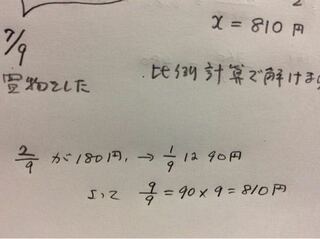 x = 810 円
7/9
買物をした
比例計算で解けま
2/9 が180円, → 1/9 は 90円
よって 9/9 = 90 × 9 = 810円